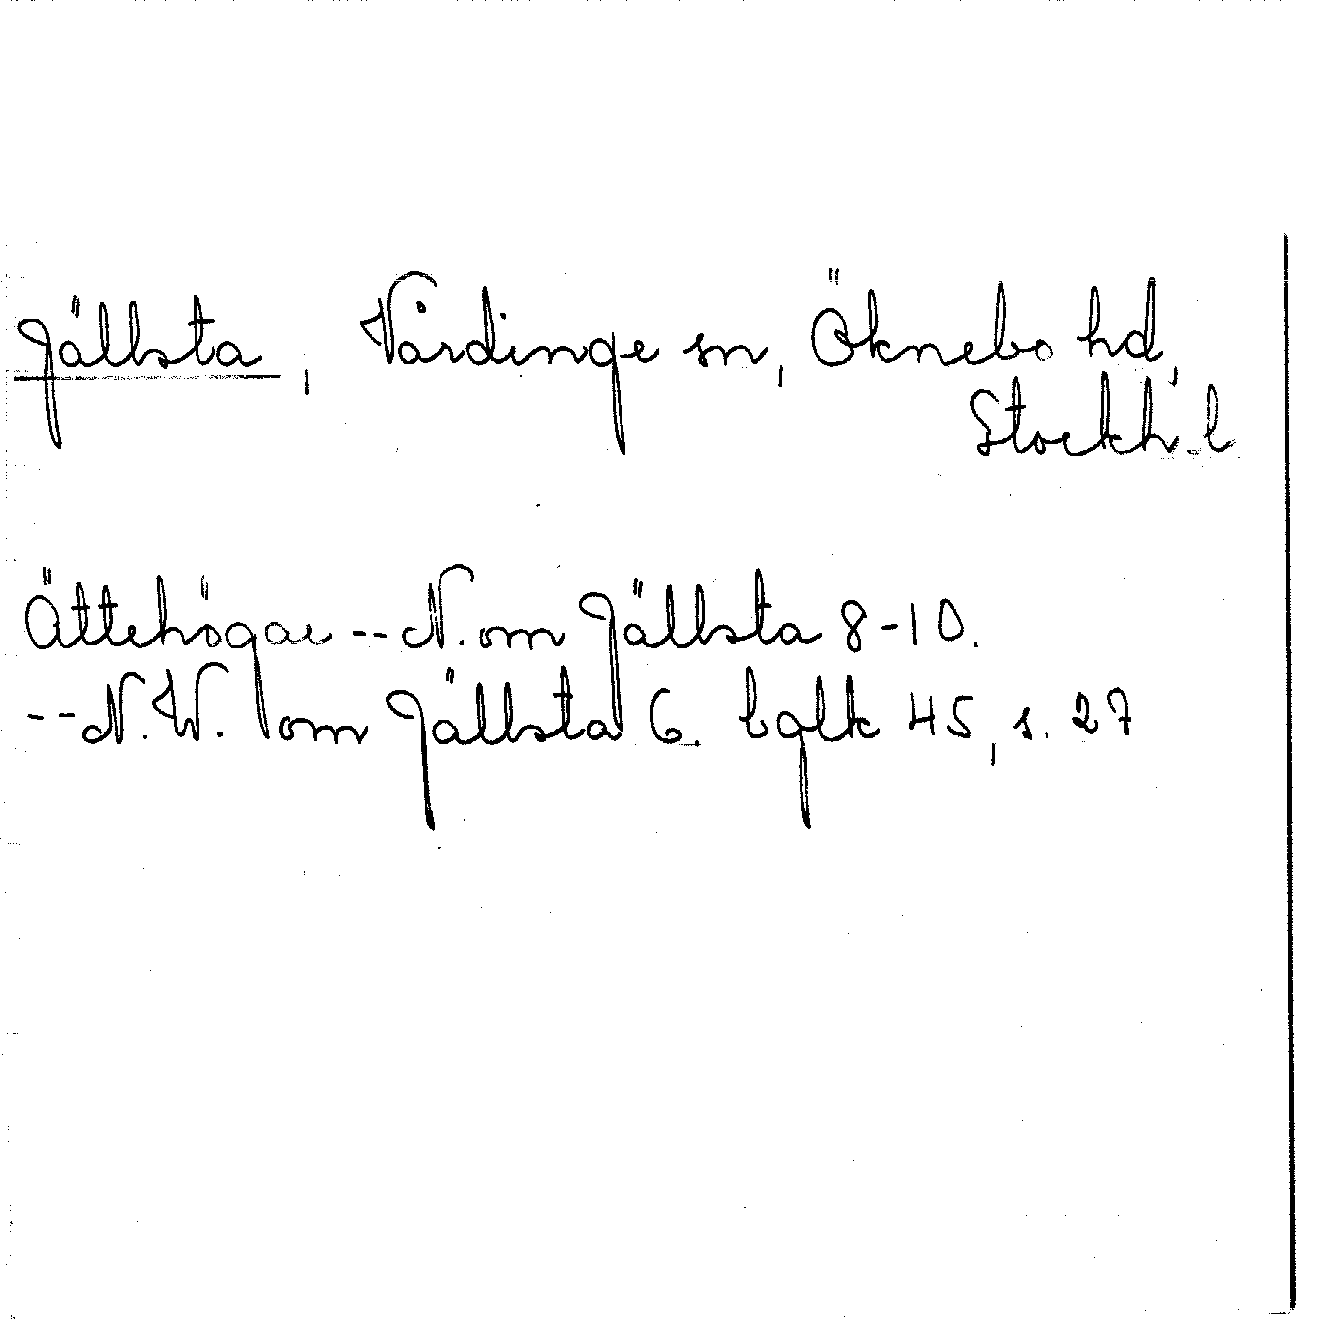 Jällsta, Vårdinge sn, Öknebo hd,
Stockh. l
Ättehögar -- N. om Jällsta 8-10.
-- N.W. om Jällsta 6. bglk 45, s. 27